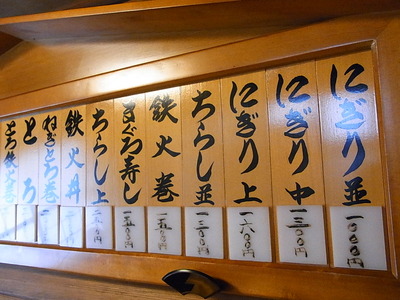 にぎり並
一〇〇〇円
にぎり中
一三〇〇円
にぎり上
一六〇〇円
ちらし並
一三〇〇円
鉄火巻
一五〇〇円
まぐろ寿し
一五〇〇円
ちらし上
鉄火丼
ねぎとろ巻
とろ
とろ鉄火巻